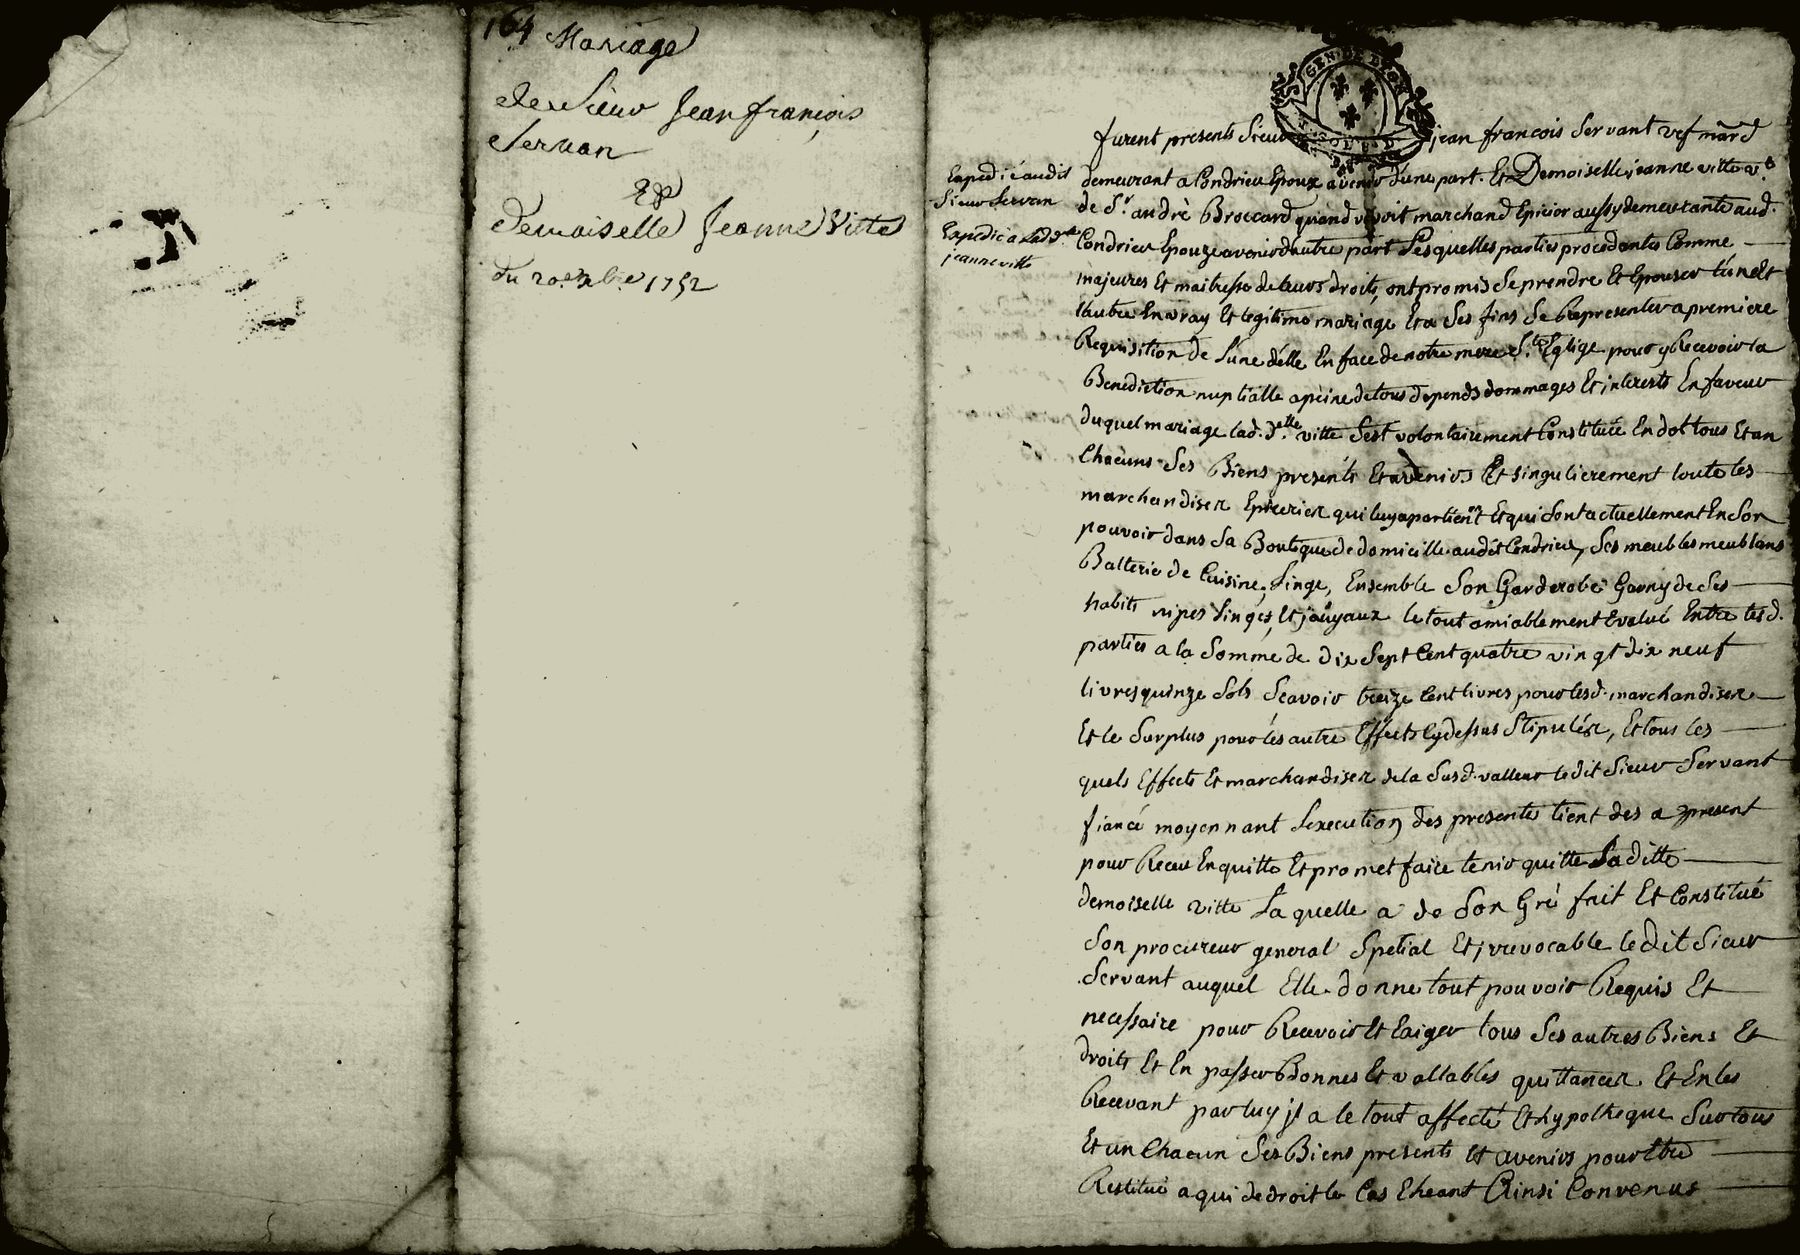 164 Mariage
de Sieur Jean françois
Servan
Et
Demoiselle Jeanne Vitte
du 20e 7bre 1752
Expedié audit
Sieur Servan
Expedié a Lad. delle
jeanne vitte
GEN DE
furent presents Sieur jean francois Servant vef mard
demeurant a Condrieu Epoux avenir d'une part. Et Demoiselle jeanne vitte vve
de Sr. andrè Broccard quand vivoit marchand Epicier aussy demeurante aud.
Condrieu Epouze avenir d'autre part Lesquelles parties procedantes Comme
majeures Et maitresse de leurs droits, ont promis Se prendre Et Epouser L'un Et
l'autre En vray Et legitime mariage Et a Ses fins Se Representer a premiere
Requisition de L'une d'elle En face de notre mere Ste Eglige pour y Recevoir la
Benediction nuptialle apeine de tous depends dommages Et interests En faveur
duquel mariage lad. delle vitte S'est volontairement Constituée En dot tous Et un
Chacuns Ses Biens presents Et avenirs Et Singulierement toute les
marchandises Epiceries qui luy apartient Et qui Sont actuellement En Son
pouvoir dans Sa Boutique de domicille audit Condrieu, Ses meubles meublans
Batterie de Cuisine, Linge, Ensemble Son Garderobe Garny de Ses
habits nipes Linges, Et jouyaux le tout amiablement Evalué Entre lesd.
parties a la Somme de dix Sept Cent quatre vingt dix neuf
livres quinze Sols Scavoir treize Cent livres pour lesd. marchandises
Et le Surplus pour les autre Effects Cy dessus Stipulés, Et tous les
quels Effects Et marchandises de la Susd. valleur ledit Sieur Servant
fiancé moyennant L'execution des presentes tient des a present
pour Receu En quitte Et promet faire tenir quitte Laditte
demoiselle vitte Laquelle a de Son Gré fait Et Constitué
Son procureur general Spetial Et irrevocable ledit Sieur
Servant auquel Elle donne tout pouvoir Requis Et
necessaire pour Recevoir Et Exiger tous Ses autres Biens Et
droits Et En passer Bonnes Et vallables quittances Et En les
Recevant par luy il a le tout affecté Et hypotheque Sur tous
Et un Chacun Ses Biens presents Et avenirs pour Etre
Restitué a qui de droit le Cas Echeant Ainsi Convenus